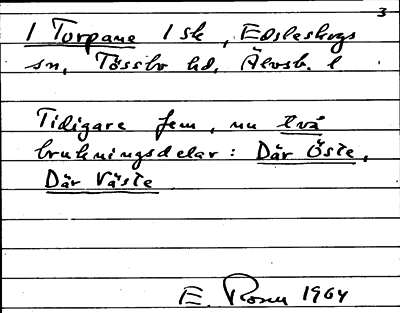 3
1 Torpane 1 sk, Edsleskogs
sn, Tössbo hd, Älvsb. l
Tidigare fem, nu två
brukningsdelar: Där Öste,
Där Väste
E. Rosen 1964